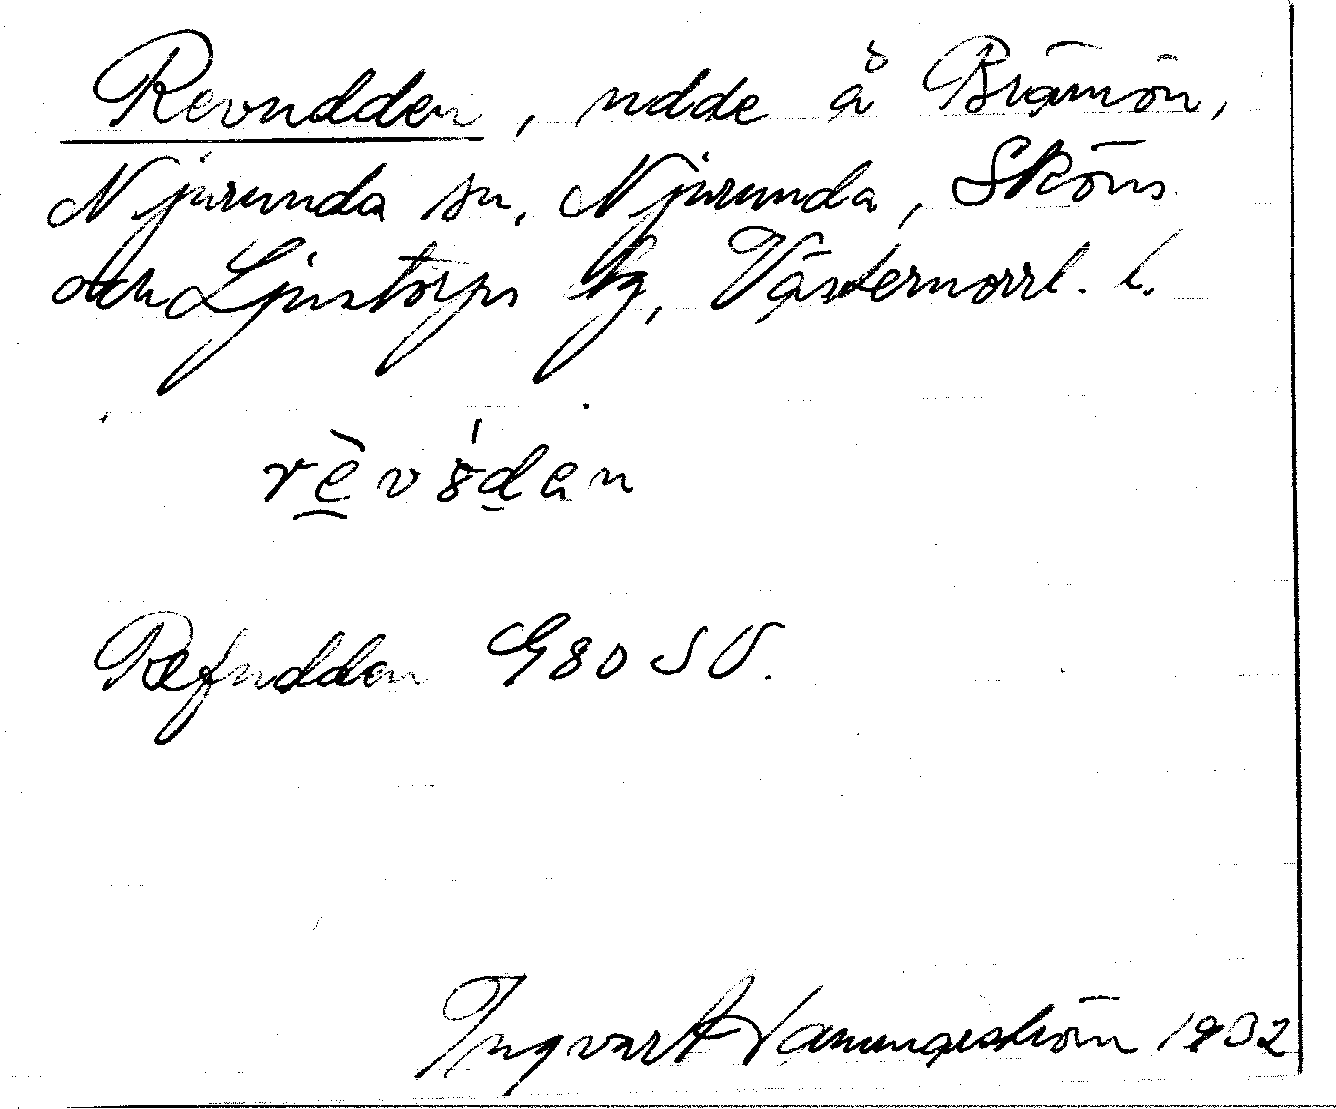 Revudden, udde å Brämön,
Njurunda sn, Njurunda, Sköns
och Ljustorps tg, Västernorrl. l.
Refudden G80 SV.
Ingvar Hammarström 1932